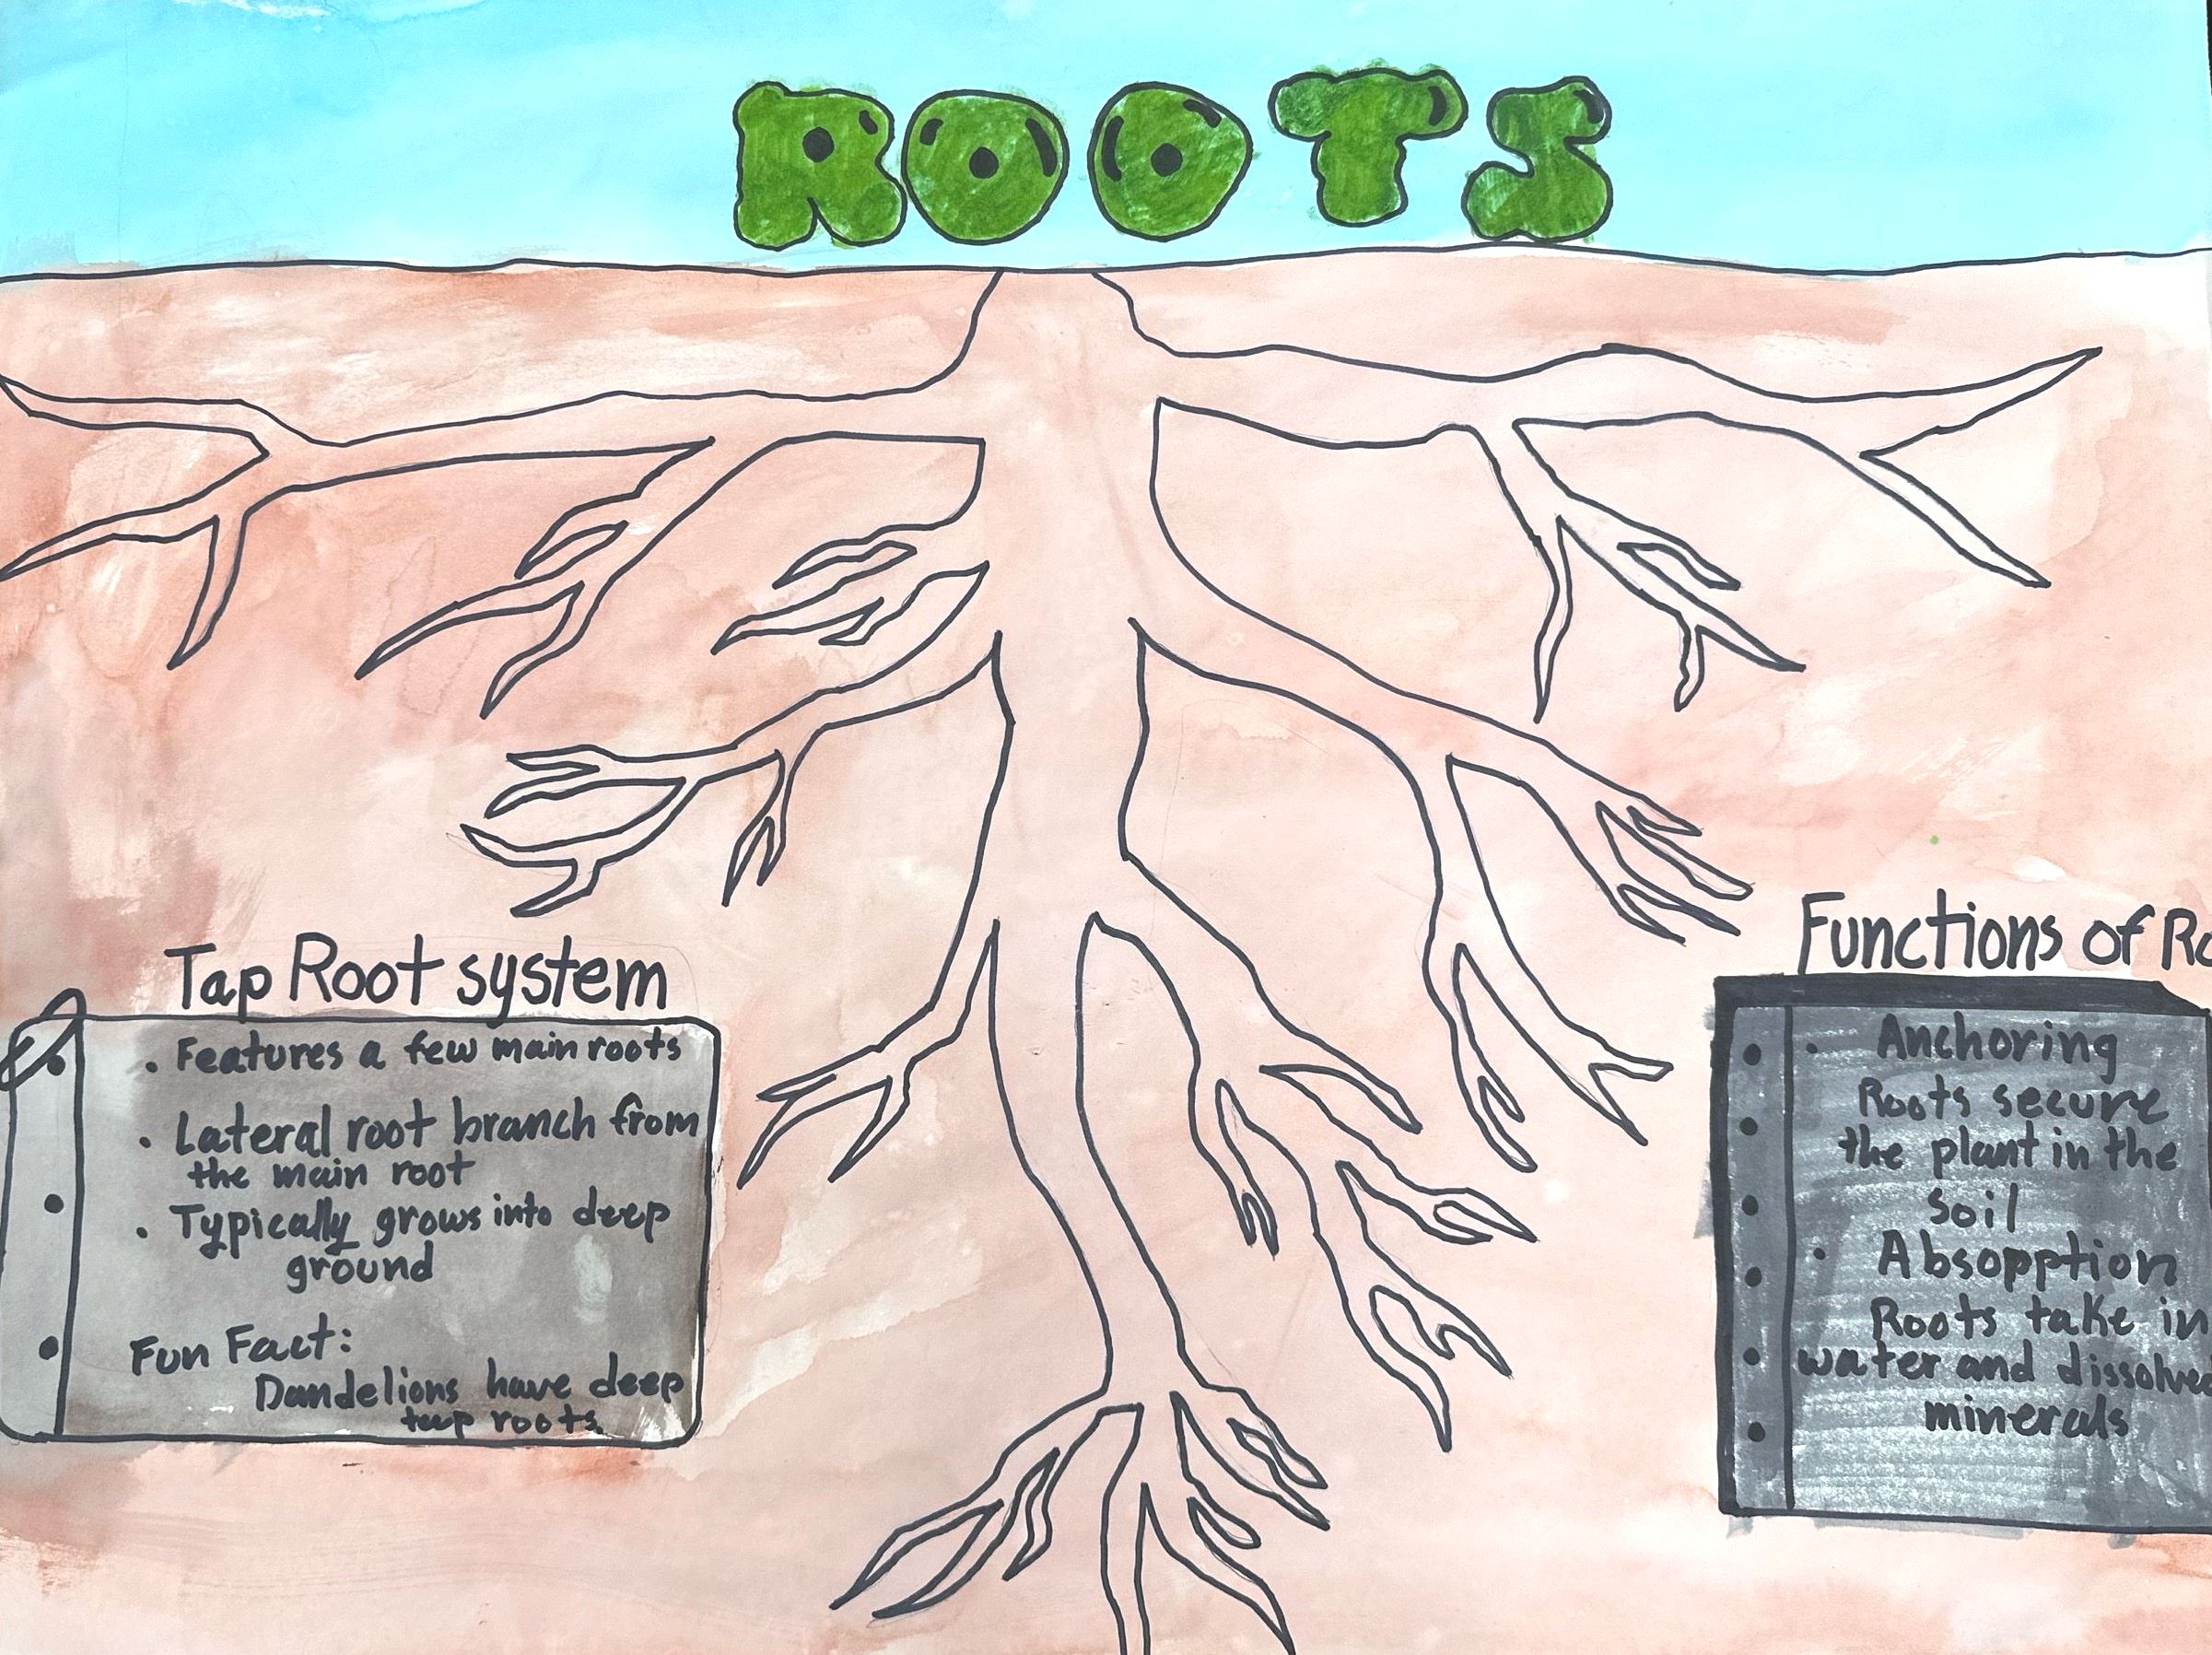 ROOTS
Tap Root system
. Features a few main roots
. Lateral root branch from
the main root
. Typically grows into deep
ground
Fun Fact:
Dandelions have deep
teep roots.
Functions of Ro
. Anchoring
Roots secure
the plant in the
soil
. Absopption
Roots take in
water and dissolved
minerals